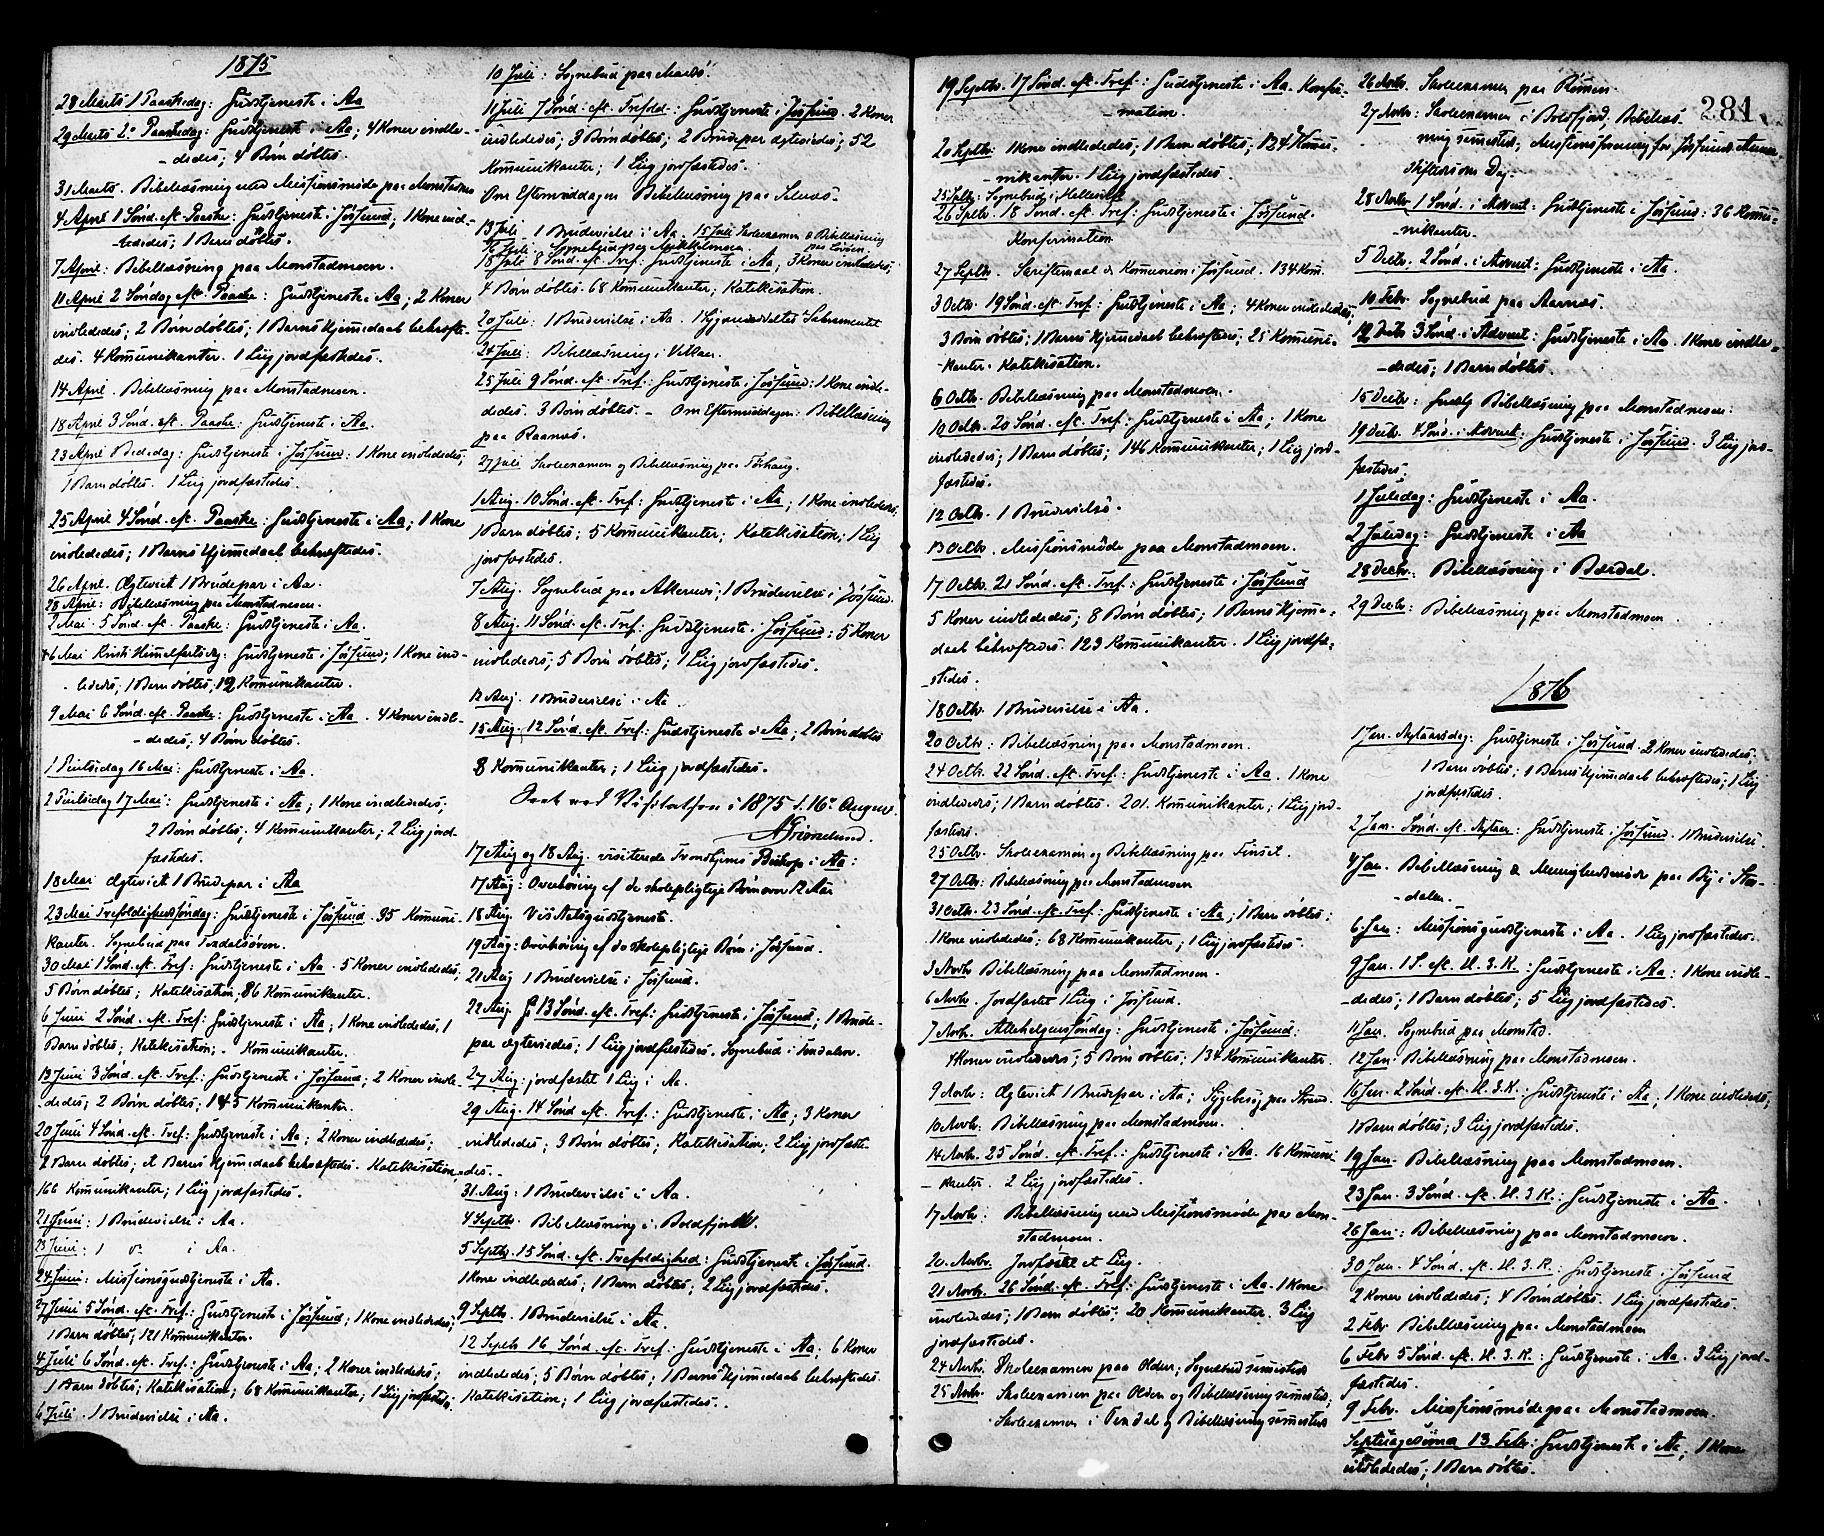 1875
28 Marts 1 Paaskedag: Gudstjeneste i Aa
29 Marts 2. Paaskedag: Gudstjeneste i Aa; 4 Koner indle-
-dedes; 4 Børn døbtes.
31 Marts. Bibellæsning med Missionsmøde paa Monstadmoen
4 April 1 Sønd. eft. Paaske: Gudstjeneste i Jøssund; 1 Kone ind-
lededes; 1 Barn døbtes.
7 April: Bibellæsning paa Monstadmoen.
11 April 2 Søndag eft. Paaske: Gudstjeneste i Aa; 2 Koner
indlededes; 2 Børn døbtes; 1 Barns Hjemmedaab bekræfte-
des. 4 Komunikanter. 1 Liig jordfæstedes.
14 April. Bibellæsning paa Monstadmoen.
18 April 3 Sønd. eft. Paaske: Gudstjeneste i Aa.
23 April Bededag: Gudstjeneste i Jøssund: 1 Kone indlededes;
1 Barn døbtes. 1 Liig jordfæstedes.
25 April 4 Sønd. eft. Paaske: Gudstjeneste i Aa; 1 Kone
indlededes; 1 Barns Hjemmedaab bekræftedes.
26 April. Ægteviet 1 Brudepar i Aa.
28 April: Bibellæsning paa Monstadmoen.
2 Mai 5 Sønd. eft. Paaske: Gudstjeneste i Aa.
6 Mai Kristi Himmelfartsdag: Gudstjeneste i Jøssund; 1 Kone ind-
-lededes; 1 Barn døbtes; 12 Komunikanter.
9 Mai 6 Sønd. eft. Paaske: Gudstjeneste i Aa. 4 Koner indle-
-dedes; 4 Børn døbtes.
1 Pintsedag 16 Mai: Gudstjeneste i Aa.
2 Pintsedag 17 Mai: Gudstjeneste i Aa; 1 Kone indlededes;
2 Børn døbtes; 4 Komunikanter; 2 Liig jord-
fæstedes.
18 Mai Ægteviet 1 Brudepar i Aa
23 Mai Trefoldighedssøndag: Gudstjeneste i Jøssund. 95 Komuni-
kanter. Sognebud paa
30 Mai 1 Sønd. eft. Tref: Gudstjeneste i Aa. 5 Koner indlededes;
5 Børn døbtes; Katekisation; 86 Komunikanter.
6 Juni 2 Sønd. eft. Tref: Gudstjeneste i Aa; 1 Kone indlededes, 1
Barn døbtes; Katekisation; - Komunikanter.
13 Juni 3 Sønd. eft. Tref: Gudstjeneste i Jøssund; 2 Koner indle-
-dedes; 2 Børn døbtes; 145 Komunikanter.
20 Juni 4 Sønd. eft. Tref: Gudstjeneste i Aa; 2 Koner indlededes;
2 Barn døbtes; et Barns Hjemmedaab bekræftedes. Katekisation
166 Komunikanter; 1 Liig jordfæstedes.
21 Juni: 1 Brudevielse i Aa.
23 Juni: 1 do i Aa.
24 Juni: Missionsgudstjeneste i Aa.
27 Juni 5 Sønd. eft. Tref: Gudstjeneste i Jøssund; 1 Kone indlededes;
1 Barn døbtes; 121 Komunikanter.
4 Juli 6 Sønd. eft. Tref: Gudstjeneste i Aa; 2 Koner indlededes;
1 Barn døbtes; Katekisation; 68 Komunikanter; 1 Liig jordfæstedes.
6 Juli. 1 Brudevielse i Aa.
10 Juli: Sognebud paa
11 Juli 7 Sønd. eft. Trefold: Gudstjeneste i Jøssund. 2 Koner
indlededes; 3 Børn døbtes; 2 Brudepar ægteviedes; 52
Komunikanter; 1 Liig jordfæstedes.
Om Eftermiddagen Bibellæsning paa Selnæs.
13 Juli 1 Brudevielse i Aa. 15 Juli Skoleexamen & Bibellæsning
16 Juli. Sognebud paa
18 Juli 8 Sønd. eft. Tref: Gudstjeneste i Aa; 3 Koner indlededes;
4 Børn døbtes. 68 Komunikanter; Katekisation.
20 Juli: 1 Brudevielse i Aa. 1 Syg meddeltes Sakramentet
24 Juli: Bibellæsning i
25 Juli 9 Sønd. eft. Tref: Gudstjeneste i Jøssund: 1 Kone indle-
dedes. 3 Børn døbtes. - Om Eftermiddagen: Bibellæsning
paa Raanæs.
27 Juli Skoleexamen og Bibellæsning paa
1 Aug. 10 Sønd. eft. Tref: Gudstjeneste i Aa; 1 Kone indlededes;
1 Barn døbtes; 5 Komunikanter; Katekisation; 1 Liig
jordfæstedes.
7 Aug. Sognebud paa; 1 Brudevielse i Jøssund.
8 Aug. 11 Sønd. eft. Tref: Gudstjeneste i Jøssund: 5 Koner
indlededes; 5 Børn døbtes; 1 Liig jordfæstedes.
12 Aug. 1 Brudevielse i Aa.
15 Aug. 12 Sønd. eft. Tref: Gudstjeneste i Aa; 2 Børn døbtes
8 Komunikanter; 1 Liig jordfæstedes.
Seet ved Visitatsen i 1875 d. 16 August
AGrimelund.
17 Aug og 18 Aug. visiterede Trondhjems Biskop i Aa:
17 Aug: Overhøring af de skolepligtige Børn over 12 Aar
18 Aug. Visitatsgudstjeneste.
19 Aug: Overhøring af de skolepligtige Børn i Jøssund.
21 Aug 1 Brudevielse i Jøssund.
22 Aug 13 Sønd. eft. Tref: Gudstjeneste i Jøssund; 1 Brude-
par ægteviedes; 1 Liig jordfæstedes. Sognebud i
27 Aug: jordfæstet 1 Liig i Aa.
29 Aug. 14 Sønd eft. Tref: Gudstjeneste i Aa; 3 Koner
indlededes; 3 Børn døbtes; Katekisation; 2 Liig jordfæste-
des.
31 Aug: 1 Brudevielse i Aa.
4 Septbr. Bibellæsning i Botsfjord.
5 Septbr. 15 Sønd. eft. Trefoldighed: Gudstjeneste i Jøssund.
1 Kone indlededes; 1 Barn døbtes; 2 Liig jordfæstedes.
9 Septbr. 1 Brudevielse i Aa.
12 Septbr 16 Sønd. eft. Tref: Gudstjeneste i Aa; 6 Koner
indlededes; 5 Børn døbtes; 1 Barns Hjemmedaab bekræftedes.
Katekisation; 1 Liig jordfæstedes.
281
19 Septbr. 17 Sønd. eft. Tref: Gudstjeneste i Aa. Konfir-
-mation.
20 Septbr. 1 Kone indlededes; 1 Barn døbtes; 124 Komu-
-nikanter. 1 Liig jordfæstedes.
25 Septbr. Sognebud i
26 Septbr. 18 Sønd. eft. Tref: Gudstjeneste i Jøssund.
Konfirmation
27 Septbr. Skriftemaal & Komunion i Jøssund. 134 Kom.
3 Octbr. 19 Sønd. eft. Tref: Gudstjeneste i Aa; 4 Koner indlededes;
3 Børn døbtes; 1 Barns Hjemmedaab bekræftedes; 25 Komuni-
-kanter. Katekisation.
6 Octbr. Bibellæsning paa Monstadmoen.
10 Octbr. 20 Sønd. eft. Tref: Gudstjeneste i Aa; 1 Kone
indlededes; 1 Barn døbtes; 146 Komunikanter; 1 Liig jord-
fæstedes.
12 Octbr. 1 Brudevielse.
13 Octbr. Missionsmøde paa Monstadmoen.
17 Octbr. 21 Sønd. eft. Tref: Gudstjeneste i Jøssund
5 Koner indlededes; 8 Børn døbtes; 1 Barns Hjemme-
daab bekræftedes. 123 Komunikanter. 1 Liig jordfæ-
-stedes.
18 Octbr. 1 Brudevielse i Aa.
20 Octbr: Bibellæsning paa Monstadmoen.
24 Octbr. 22 Sønd. eft. Tref: Gudstjeneste i Aa. 1 Kone
indlededes; 1 Barn døbtes. 201. Komunikanter; 1 Liig jord-
fæstedes.
25 Octbr. Skoleexamen og Bibellæsning paa Finset.
27 Octbr: Bibellæsning paa Monstadmoen
31 Octbr. 23 Sønd. eft. Tref: Gudstjeneste i Aa; 1 Barn døbtes;
1 Kone indlededes; 68 Komunikanter; 1 Liig jordfæstedes.
3 Novbr Bibellæsning paa Monstadmoen.
6 Novbr. Jordfæstet 1 Liig i Jøssund.
7 Novbr. Allehelgenssøndag: Gudstjeneste i Jøssund:
4 Koner indlededes; 5 Børn døbtes; 134 Komunikanter.
9 Novbr: Ægteviet 1 Brudepar i Aa; Sygebesøg paa Strand.
10 Novbr: Bibellæsning paa Monstadmoen.
14 Novbr. 25 Sønd. eft. Tref: Gudstjeneste i Aa. 16 Komuni
-kanter. 2 Liig jordfæstedes.
17 Novbr: Bibellæsning med Missionsmøde paa Mon-
stadmoen.
20. Novbr. Jordfæstet et Liig.
21 Novbr. 26 Sønd. eft. Tref: Gudstjeneste i Aa. 1 Kone
indlededes; 1 Barn døbtes; 20 Komunikanter. 3 Liig
jordfæstedes.
24 Novbr. Skoleexamen paa Olden, Sognebud sammesteds
25 Novbr. Skoleexamen paa Olden og Bibellæsning sammesteds;
Skoleexamen i og Bibellæsning sammesteds
26 Novbr. Skoleexamen paa
27 Novbr: Skoleexamen i Botsfjord. Bibellæs-
ning sammesteds; Missionsforening for Jøssunds Annex
stiftes om Dag.
28 Novbr 1 Sønd. i Advent: Gudstjeneste i Jøssund: 36 Komu-
-nikanter.
5 Decbr: 2 Sønd. i Advent: Gudstjeneste i Aa.
10 Sognebud paa Aarnæs.
12 Decbr 3 Sønd. i Advent: Gudstjeneste i Aa. 1 Kone indle-
-dedes; 1 Barn døbtes.
15 Decbr: Bibellæsning paa Monstadmoen:
19 Decbr. 4 Sønd. i Advent: Gudstjeneste i Jøssund. 3 Liig jor-
fæstedes;
1 Juledag: Gudstjeneste i Aa.
2 Juledag: Gudstjeneste i Aa
28 Decbr: Bibellæsning i
29 Decbr: Bibellæsning paa Monstadmoen
1876
1 Jan. Nytaarsdag: Gudstjeneste i Jøssund. 2 Koner indlededes;
1 Barn døbtes; 1 Barns Hjemmedaab bekræftedes; 1 Liig
jordfæstedes.
2 Jan. Sønd. eft. Nytaar: Gudstjeneste i Jøssund. 1 Brudevielse.
4 Jan. Bibellæsning & Menighedsmøde paa By i Stor-
-dalen.
6 Jan: Missionsgudstjeneste i Aa. 1 Liig jordfæstedes.
9 Jan. 1 S. eft. H. 3. K.: Gudstjeneste i Aa: 1 Kone indle-
-dedes; 1 Barn døbtes; 5 Liig jordfæstedes.
11 Jan. Sognebud paa Monstad.
12 Jan: Bibellæsning paa Monstadmoen.
16 Jan. 2 Sønd. eft. H. 3. K.: Gudstjeneste i Aa; 1 Kone indlededes;
1 Barn døbtes; 3 Liig jordfæstedes.
19 Jan. Bibellæsning paa Monstadmoen.
23 Jan. 3 Sønd. eft. H. 3 K.: Gudstjeneste i Aa.
26 Jan: Bibellæsning paa Monstadmoen.
30 Jan. 4 Sønd. eft. H. 3. K.: Gudstjeneste i Jøssund
2 Koner indlededes; 4 Børn døbtes. 1 Liig jordfæstedes.
2 Febr Bibellæsning paa Monstadmoen
6 Febr 5 Sønd. eft. H. 3. K: Gudstjeneste i Aa. 3 Liig jord-
fæstedes.
9 Febr. Missionsmøde paa Monstadmoen.
Septuagesima 13 Febr: Gudstjeneste i Aa; 1 Kone
indlededes; 1 Barn døbtes.